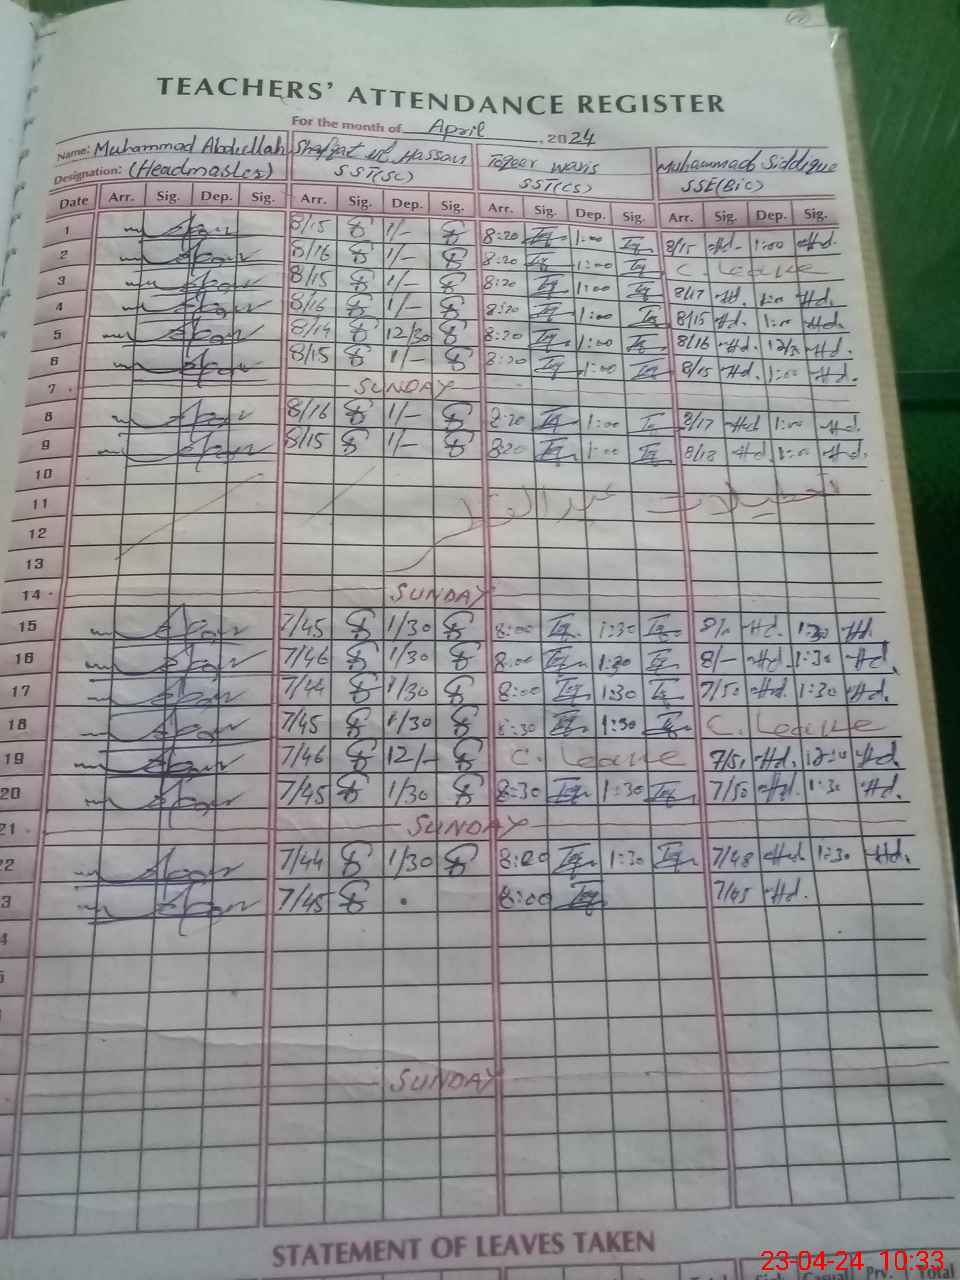 TEACHERS' ATTENDANCE REGISTER
For the month of April, 2024
Name: Muhammad Abdullah Shafqat ul Hassan Toqeer Waris Muhammad Siddique
Designation: (Headmaster) SST(SC) SST(CS) SSE(Bio)
Date Arr. Sig. Dep. Sig. Arr. Sig. Dep. Sig. Arr. Sig. Dep. Sig. Arr. Sig. Dep. Sig.
1 8/15 1/- 8:20 1:00 8/15 1:00
2 8/16 1/- 8:20 1:00 C. Leave
3 8/15 1/- 8:20 1:00 8/17 1:00
4 8/16 1/- 8:20 1:00 8/15 1:00
5 8/14 12/30 8:20 1:00 8/16
6 8/15 1/- 8:20 1:00 8/15 1:00
7 SUNDAY
8 8/16 1/- 8:20 1:00 8/17 1:00
9 8/15 1/- 8:20 1:00 8/18 1:00
10
11 تعطیلات عیدالفطر
12
13
14 SUNDAY
15 7/45 1/30 8:00 1:30 1:30
16 7/46 1/30 8:00 1:30 8/- 1:30
17 7/44 1/30 8:00 1:30 7/50 1:30
18 7/45 1/30 8:30 1:30 C. Leave
19 7/46 12/- C. Leave
20 7/45 1/30 8:30 1:30 7/50 1:30
21 SUNDAY
22 7/44 1/30 8:00 1:30 7/48 1:30
3 7/45 8:00 7/45
4
SUNDAY
STATEMENT OF LEAVES TAKEN
Casual Prv. Total
23-04-24 10:33